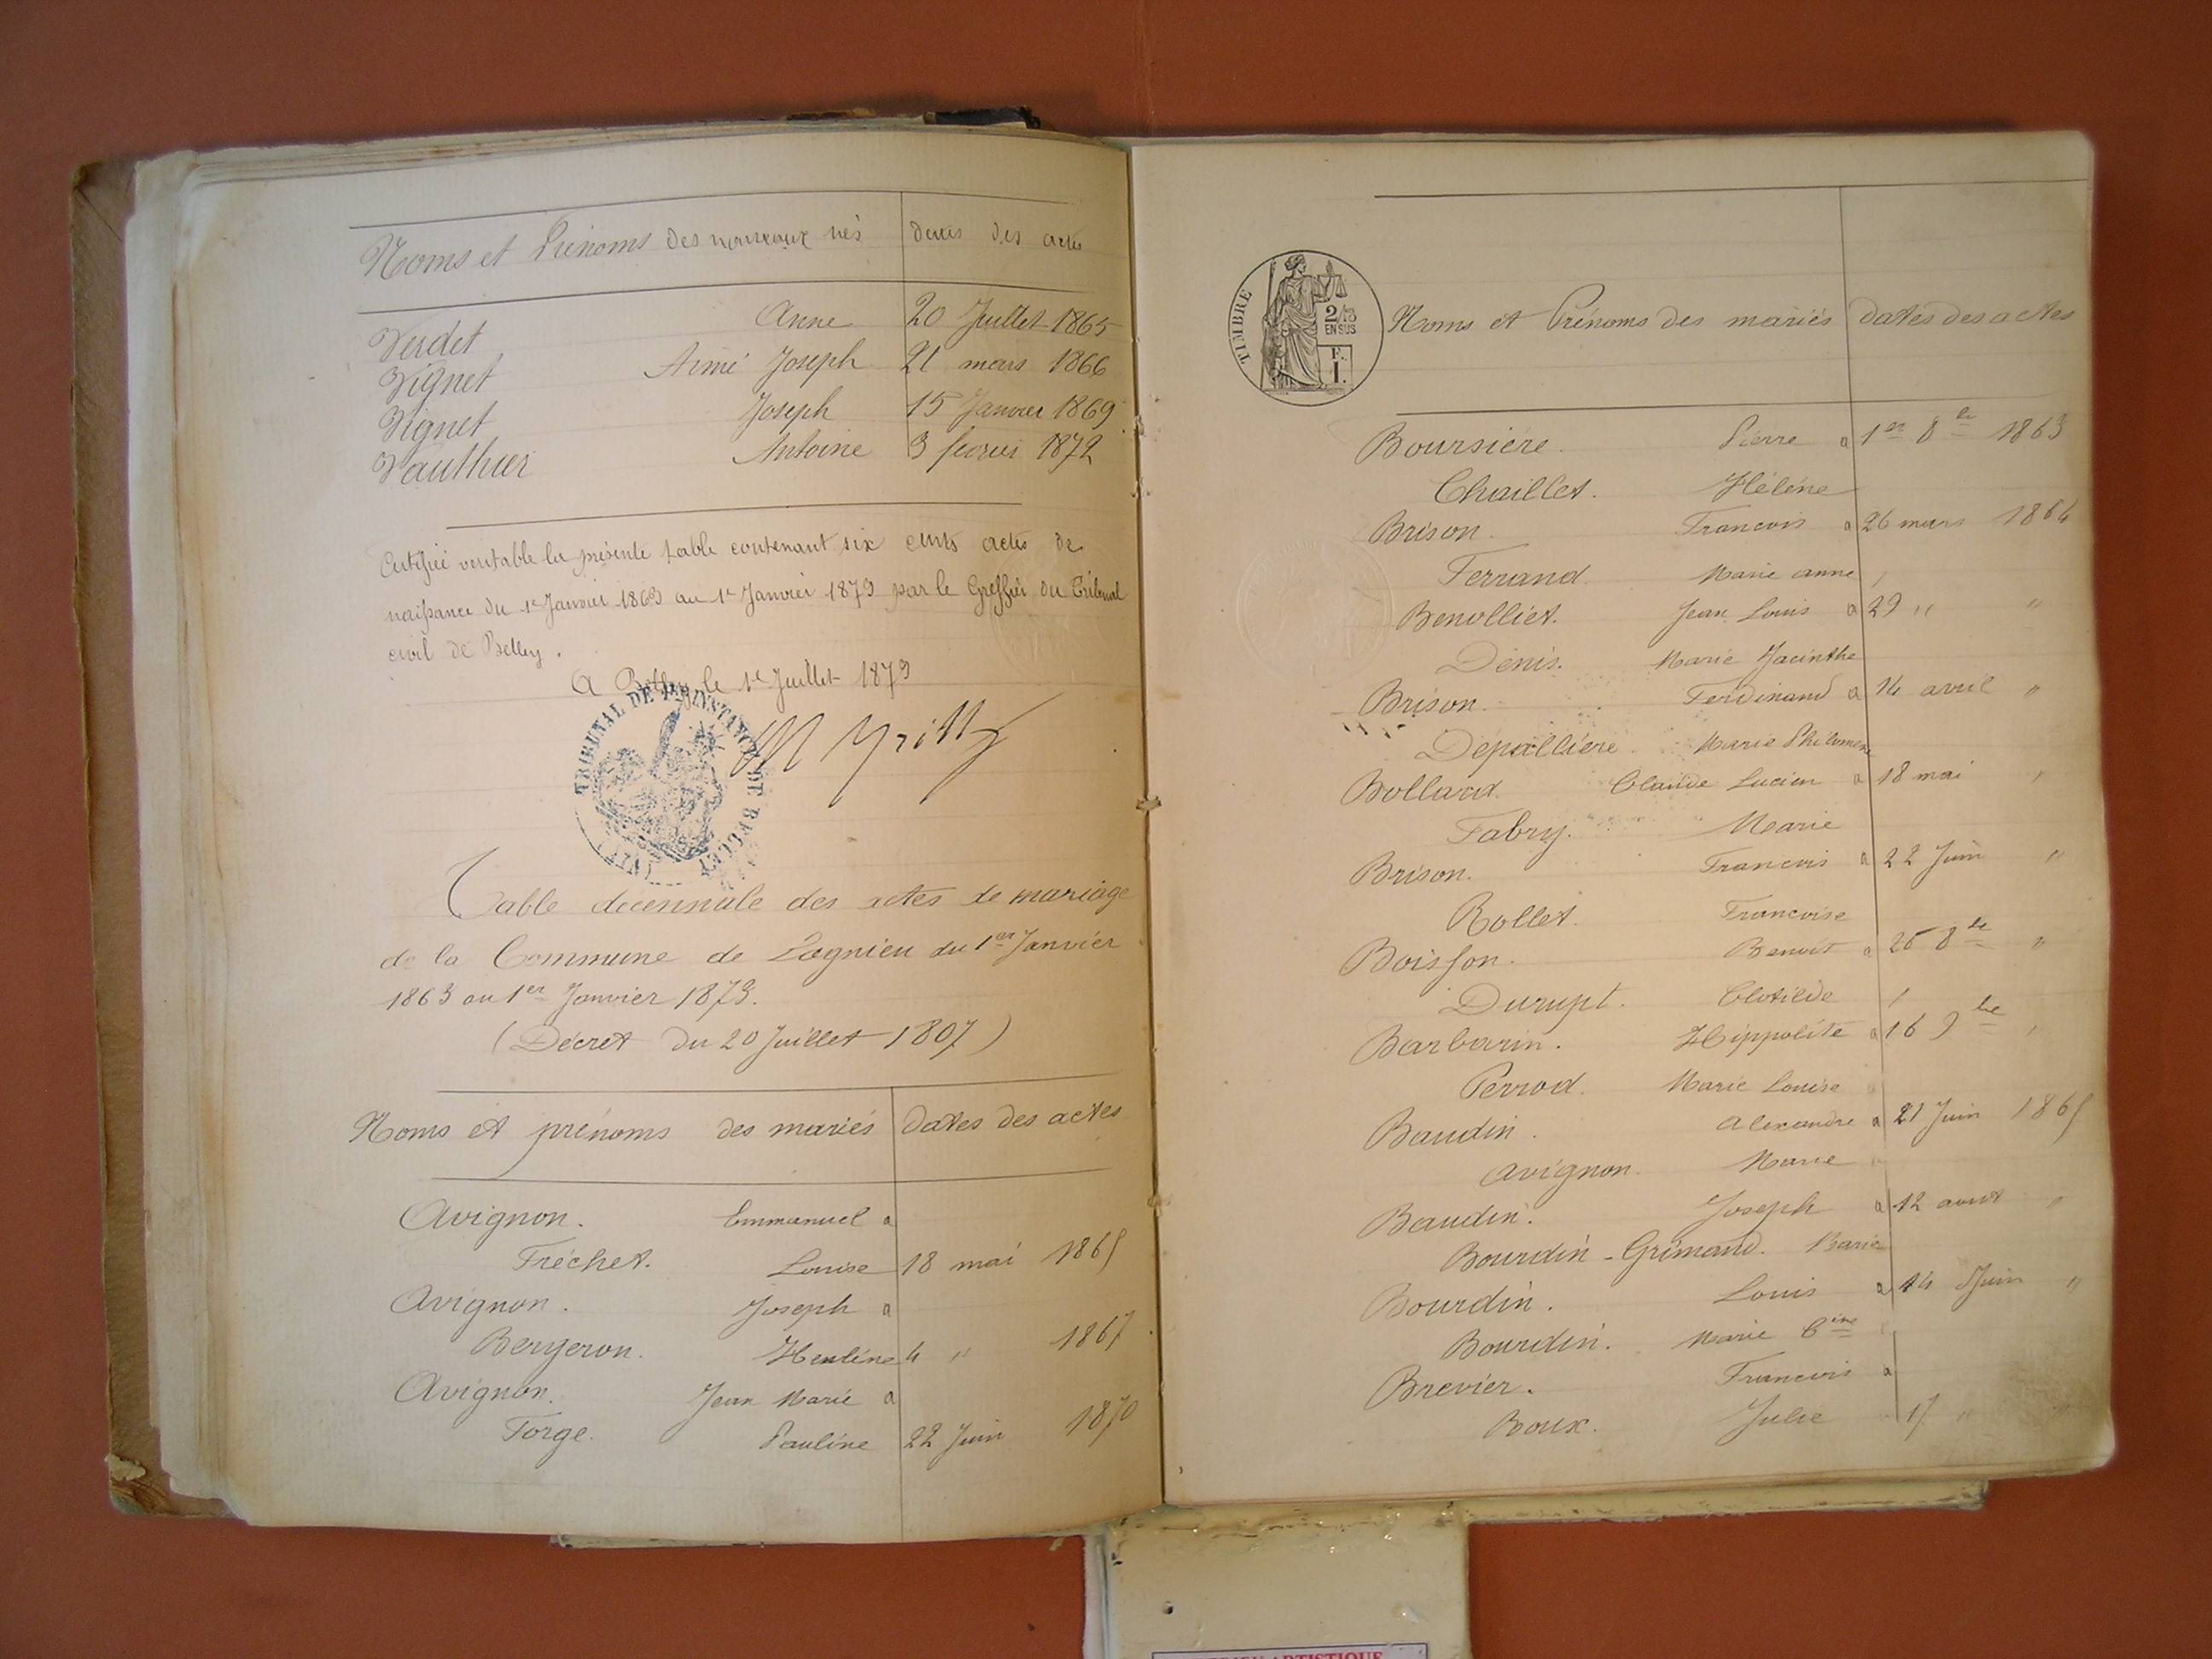 Noms et Prénoms des nouveaux nés dates des actes
Verdet Anne 20 Juillet 1865
Vignet Aimé Joseph 21 mars 1866
Vignet Joseph 15 Janvier 1869
Vauthier Antoine 3 fevrier 1872
Certifiée veritable la présente table contenant six cents actes de
naissance du 1er Janvier 1863 au 1er Janvier 1873 par le Greffier du Tribunal
civil de Belley.
A Belley le 1er Juillet 1873
TRIBUNAL DE 1ère INSTANCE DE BELLEY (AIN)
Table décennale des actes de mariage
de la Commune de Lagnieu du 1er Janvier
1863 au 1er Janvier 1873.
(Décret du 20 Juillet 1807)
Noms et prénoms des mariés dates des actes
Avignon. Emmanuel a
Fréchet. Louise 18 mai 1865
Avignon. Joseph a
Bergeron. 4 " 1867
Avignon. Jean Marie a
Forge. Pauline 22 Juin 1870
TIMBRE 2/10 EN SUS F. 1.
Noms et Prénoms des mariés dates des actes
Boursière. Pierre a 1er 8bre 1863
Chaillet. Hélène
Brison. Francois a 26 mars 1864
Ferrand. Marie anne
Benolliet. Jean Louis a 29 " "
Denis. Marie Jacinthe
Brison. Ferdinand a 14 avril "
Depollière. Marie Philomène
Bollard. Claude Lucien a 18 mai "
Fabry. Marie
Brison. Francois a 22 Juin "
Rollet. Francoise
Boisson. Benoit a 26 8bre "
Durupt. Clotilde
Barbarin. Hippolite a 16 9bre "
Perrod. Marie Louise
Baudin. Alexandre a 21 Juin 1865
Avignon. Marie
Baudin. Joseph a 12 aout "
Bourdin-Grimand. Marie
Bourdin. Louis a 14 Juin "
Bourdin. Marie Cine
Brevier. Francois a
Roux. Julie 17 " "